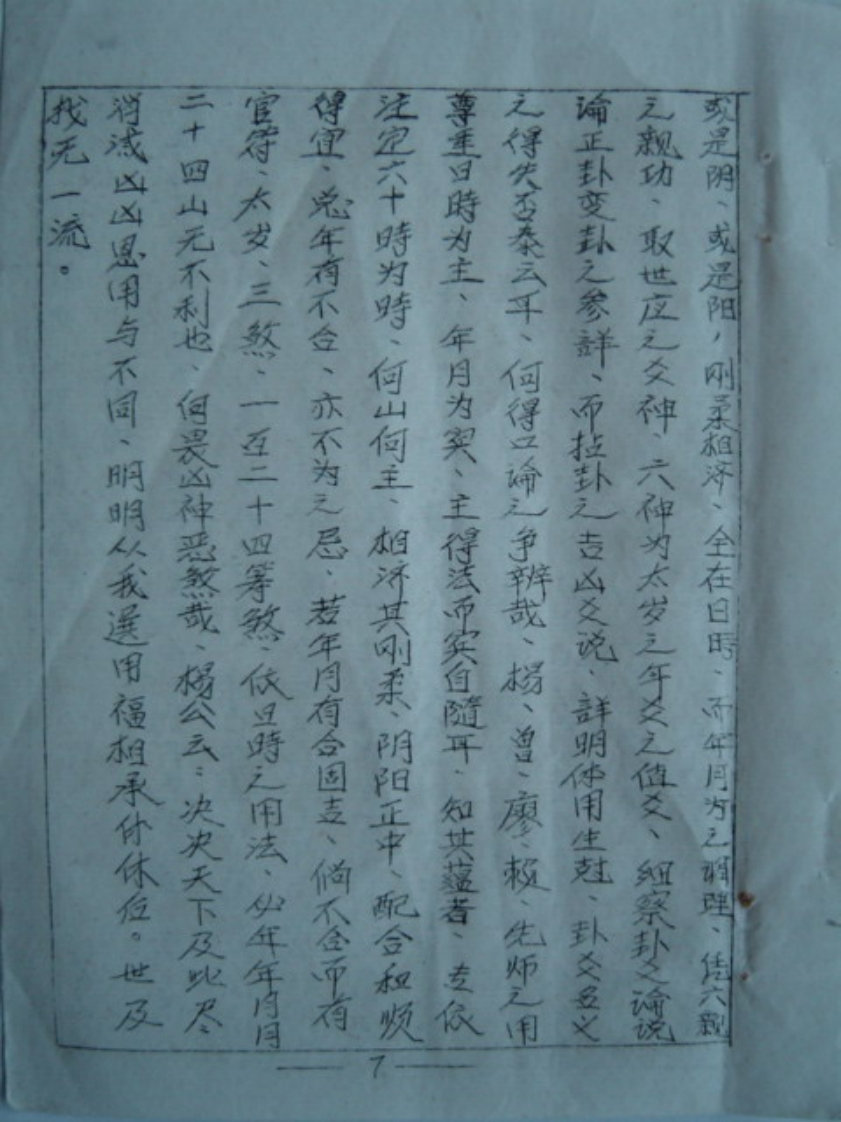 或是阴、或是阳，刚柔相济、全在日時、而年月为之调理、凭六親
之親功、取世应之爻神、六神为太岁之年爻之值爻、细察卦爻论说
论正卦变卦之参詳、而拈卦之吉凶爻说、詳明体用生尅、卦爻名义
之得失否泰云耳、何得口論之争辨哉、楊、曾、廖、赖、先师之用
尊重日時为主、年月为宾、主得法而宾自隨耳、知其蕴者、专依
注定六十時为時、何山何主、相济其刚柔、阴阳正中、配合和顺
得宜、忌年有不合、亦不为之忌、若年月有合固吉、倘不合而有
官符、太岁、三煞、一百二十四等煞、依日時之用法、必年年月月
二十四山无不利也、何畏凶神恶煞哉、楊公云：决决天下及此尽、
消滅凶凶恩用与不同、明明从我選用福相承休休位。世及
找无一流。
7